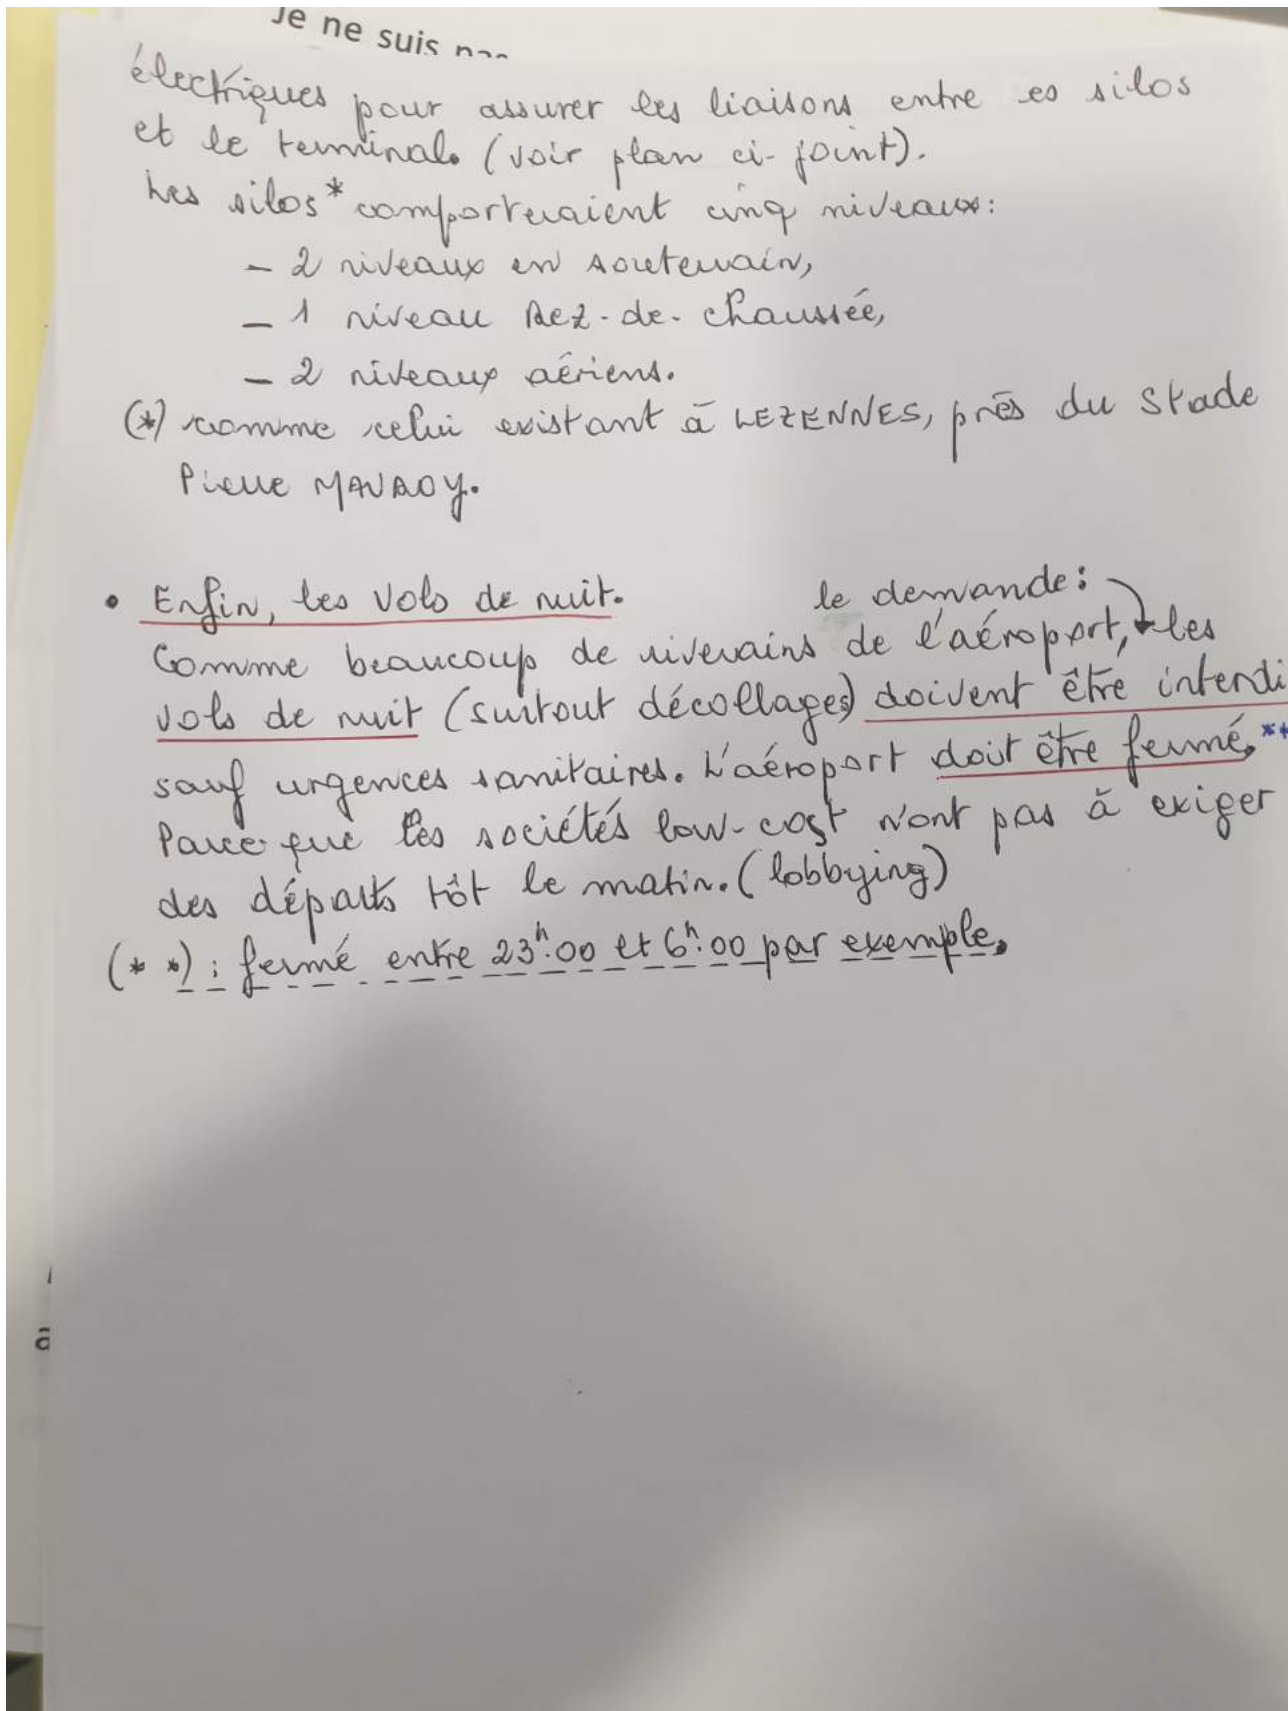 Je ne suis pas
électriques pour assurer les liaisons entre es silos
et le terminal. (voir plan ci-joint).
Les silos* comporteraient cinq niveaux:
- 2 niveaux en souterrain,
- 1 niveau Rez-de-chaussée,
- 2 niveaux aériens.
(*) comme celui existant à LEZENNES, près du Stade
Pierre MAUROY.
• Enfin, les vols de nuit.
le demande:
Comme beaucoup de riverains de l'aéroport, les
vols de nuit (surtout décollages) doivent être interdi
sauf urgences sanitaires. L'aéroport doit être fermé. **
Parce que les sociétés low-cost n'ont pas à exiger
des départs tôt le matin. (lobbying)
(* *) : fermé entre 23h.00 et 6h.00 par exemple.
a